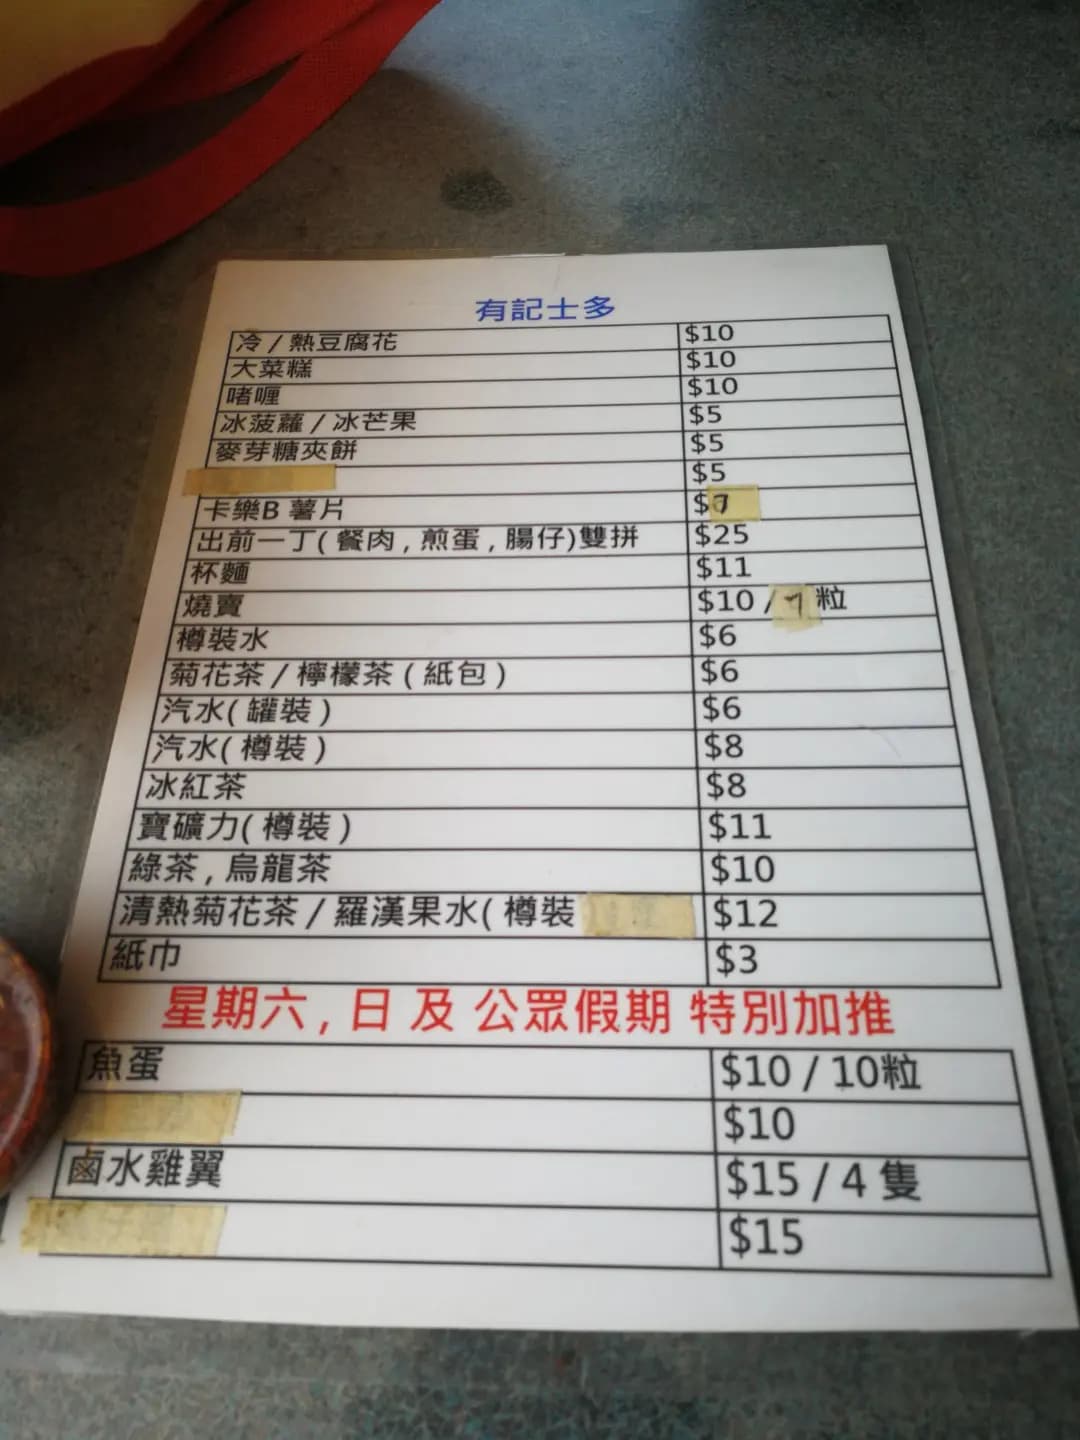 有記士多
冷 / 熱豆腐花 $10
大菜糕 $10
啫喱 $10
冰菠蘿 / 冰芒果 $5
麥芽糖夾餅 $5
$5
卡樂B 薯片 $7
出前一丁( 餐肉 , 煎蛋 , 腸仔)雙拼 $25
杯麵 $11
燒賣 $10 / 7 粒
樽裝水 $6
菊花茶 / 檸檬茶 ( 紙包 ) $6
汽水( 罐裝 ) $6
汽水( 樽裝 ) $8
冰紅茶 $8
寶礦力( 樽裝 ) $11
綠茶 , 烏龍茶 $10
清熱菊花茶 / 羅漢果水( 樽裝 $12
紙巾 $3
星期六 , 日 及 公眾假期 特別加推
魚蛋 $10 / 10粒
$10
鹵水雞翼 $15 / 4 隻
$15